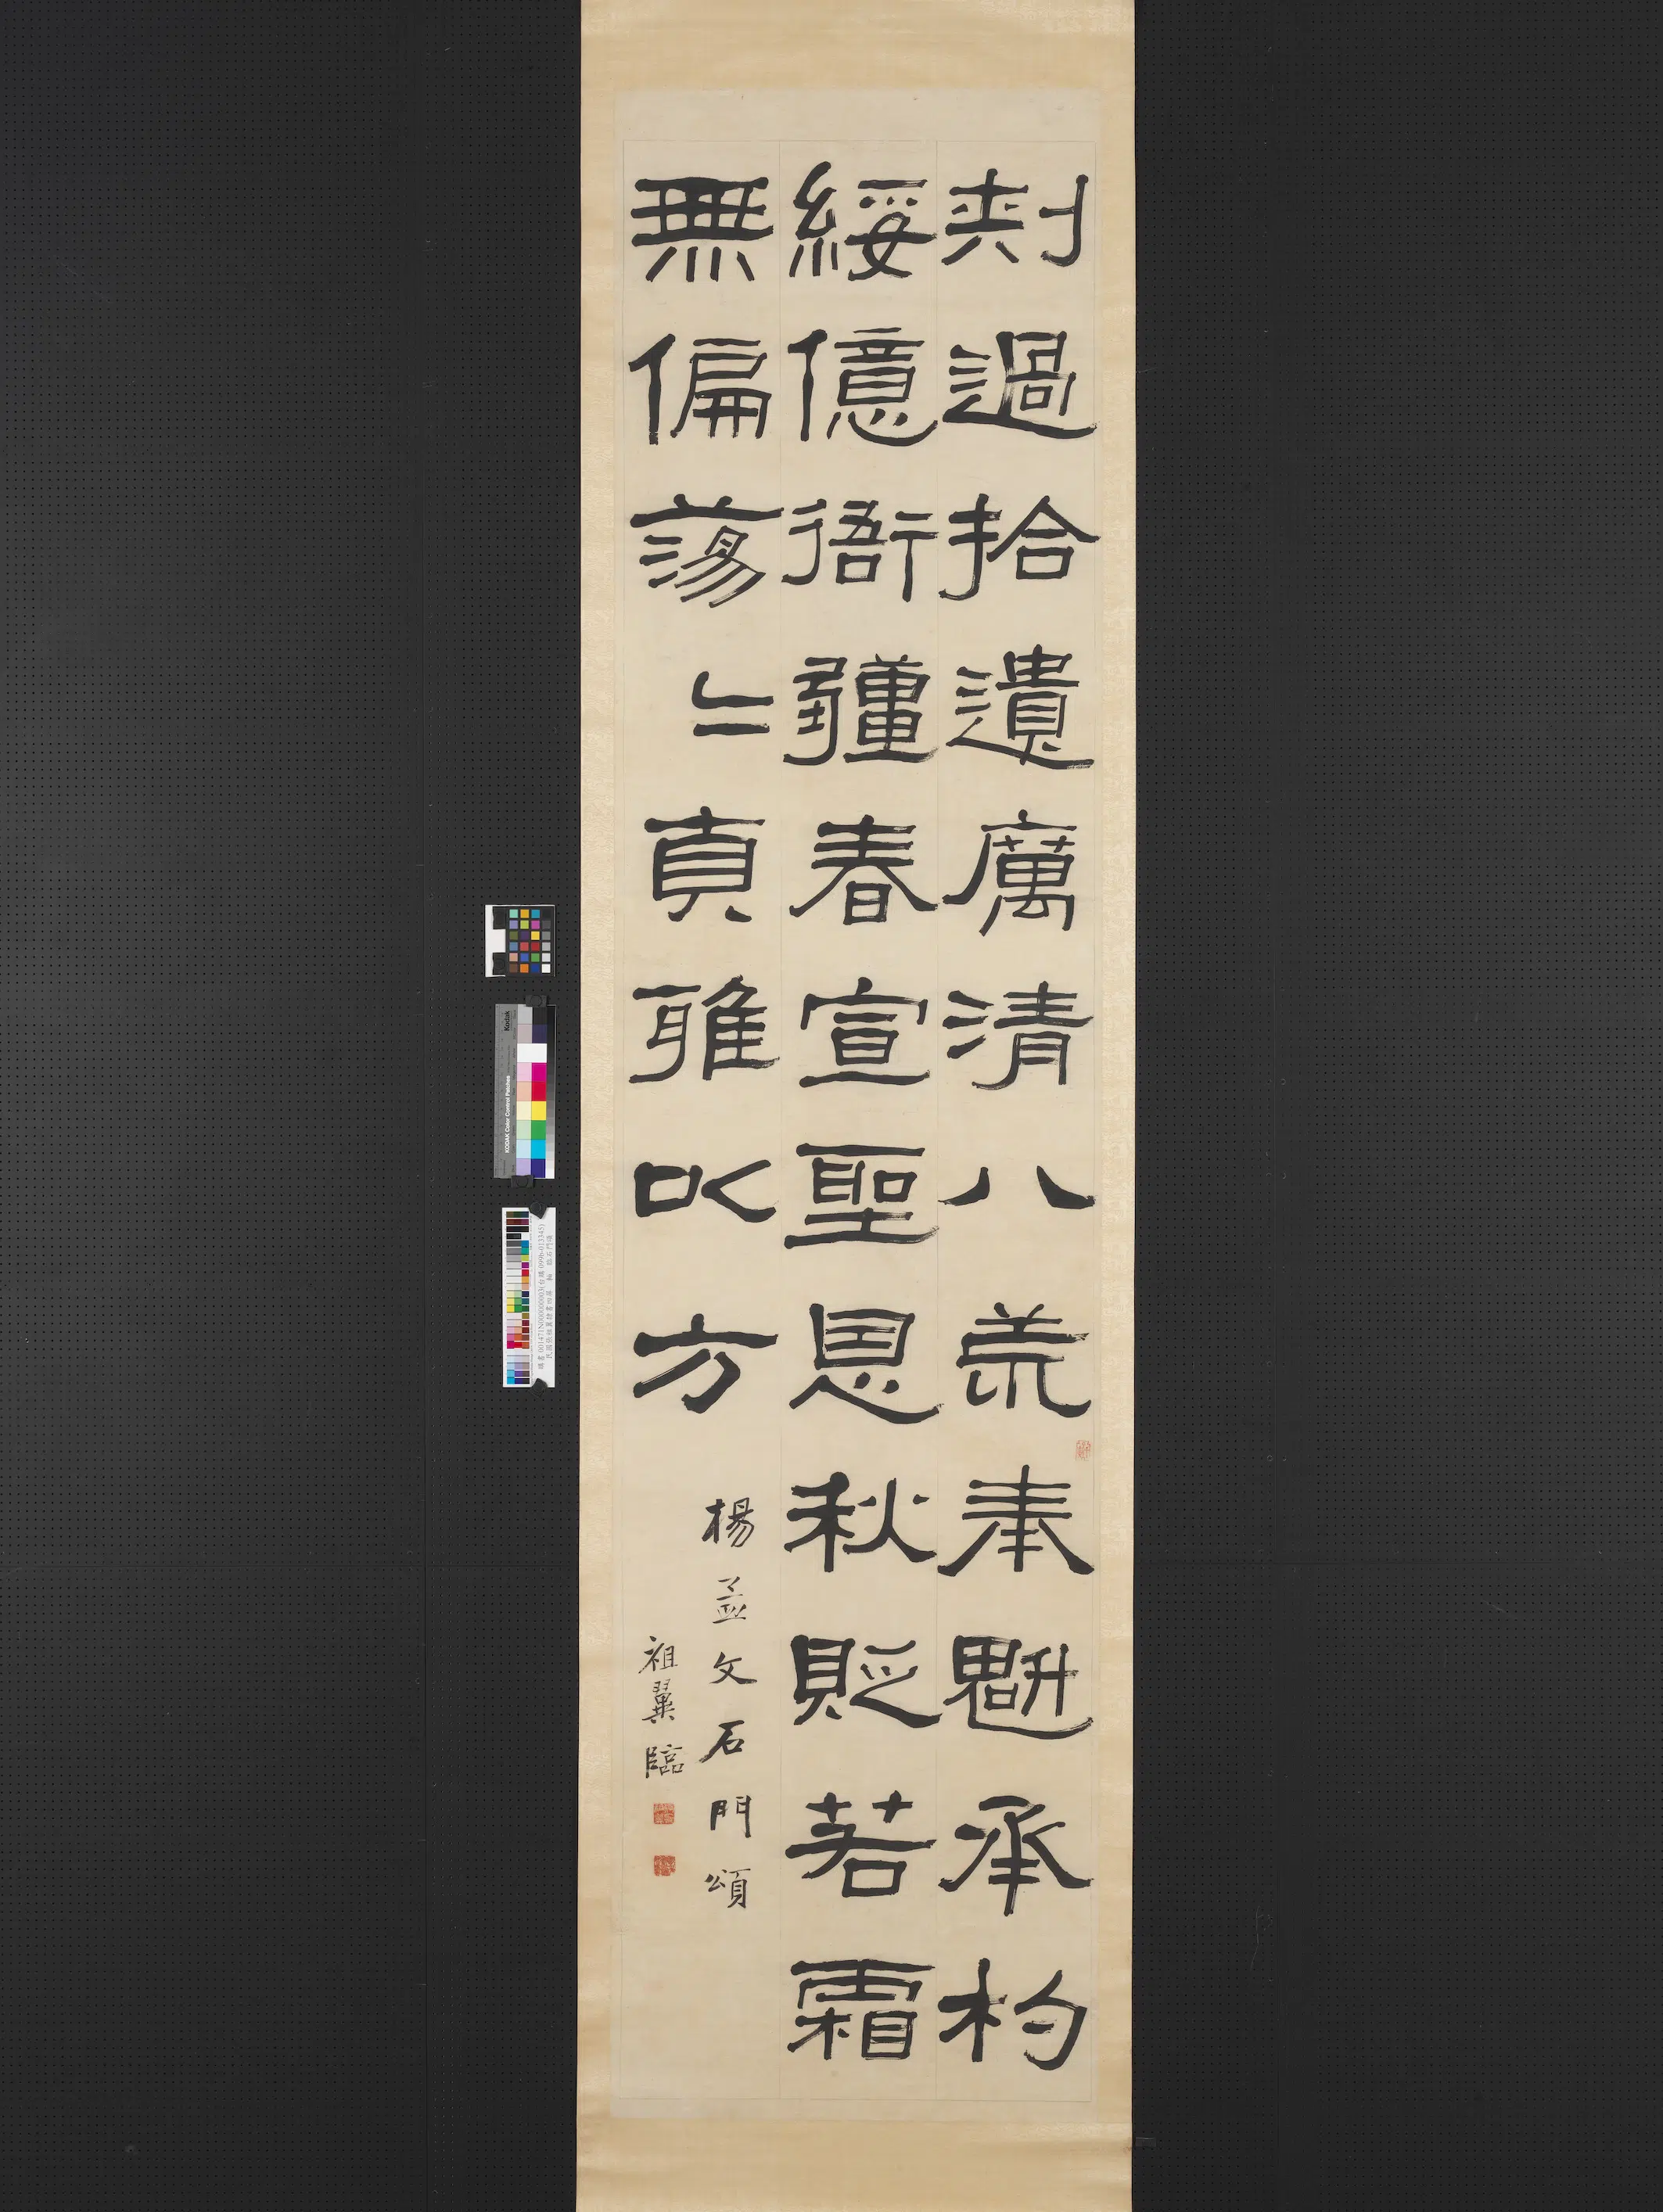 刺過拾遺厲清八荒奉魁承杓
綏億衙疆春宣聖恩秋貶若霜
無偏蕩〻貞雅以方
楊孟文石門頌
祖翼臨
Kodak
KODAK Color Control Patches
臨石門頌